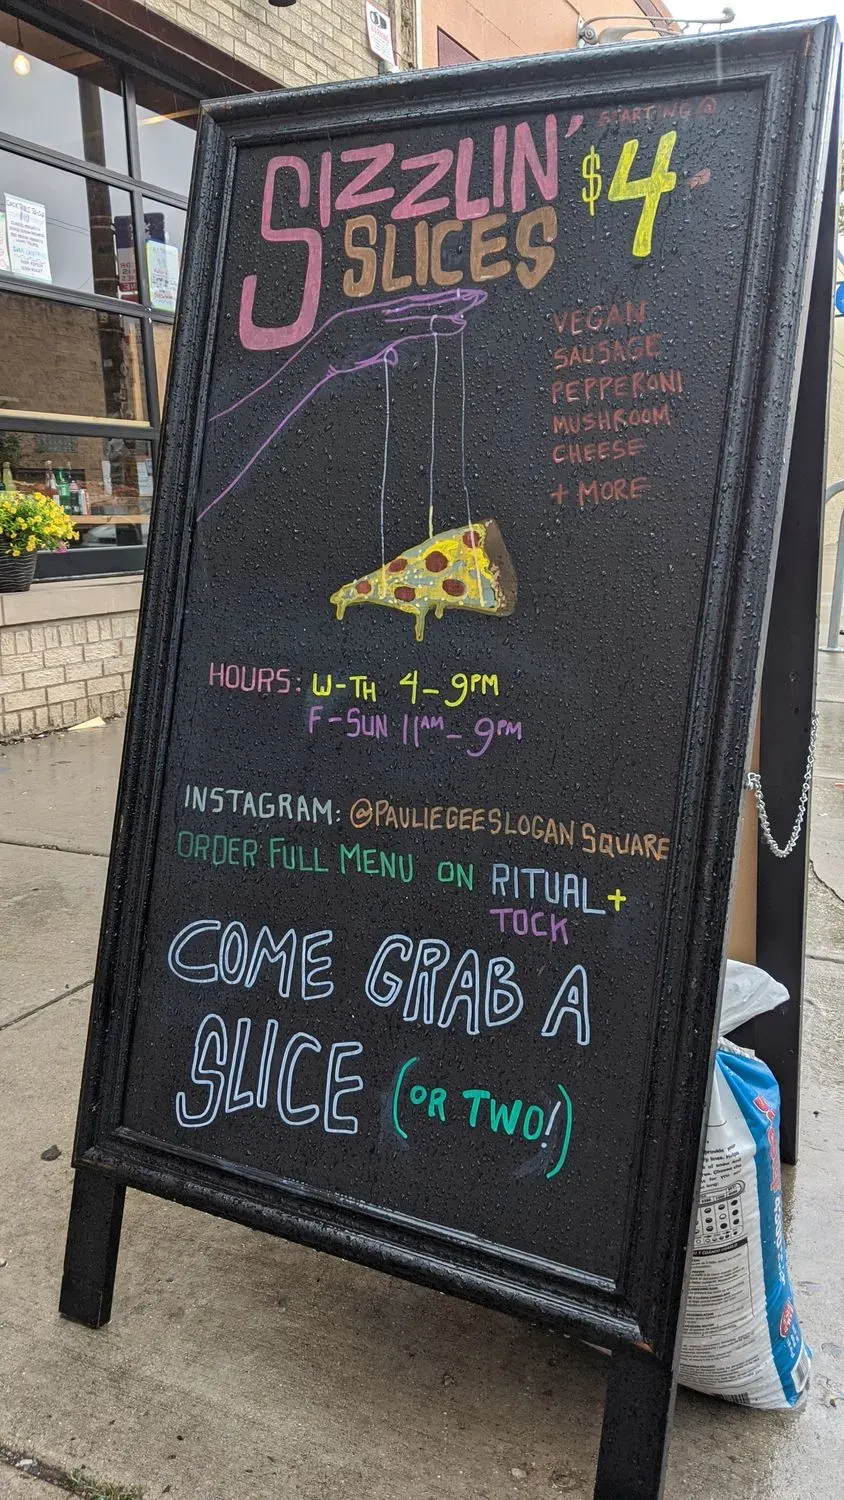 STARTING @
SIZZLIN' $4
SLICES
VEGAN
SAUSAGE
PEPPERONI
MUSHROOM
CHEESE
+ MORE
HOURS: W-TH 4-9PM
F-SUN 11AM-9PM
INSTAGRAM: @PAULIEGEESLOGANSQUARE
ORDER FULL MENU ON RITUAL +
TOCK
COME GRAB A
SLICE (OR TWO!)